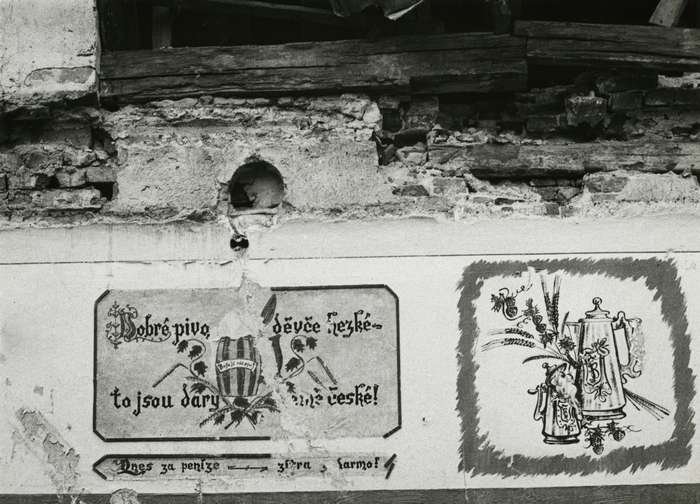 Dobré pivo děvče hezké-
to jsou dary země české!
Dnes za peníze zítra darmo!